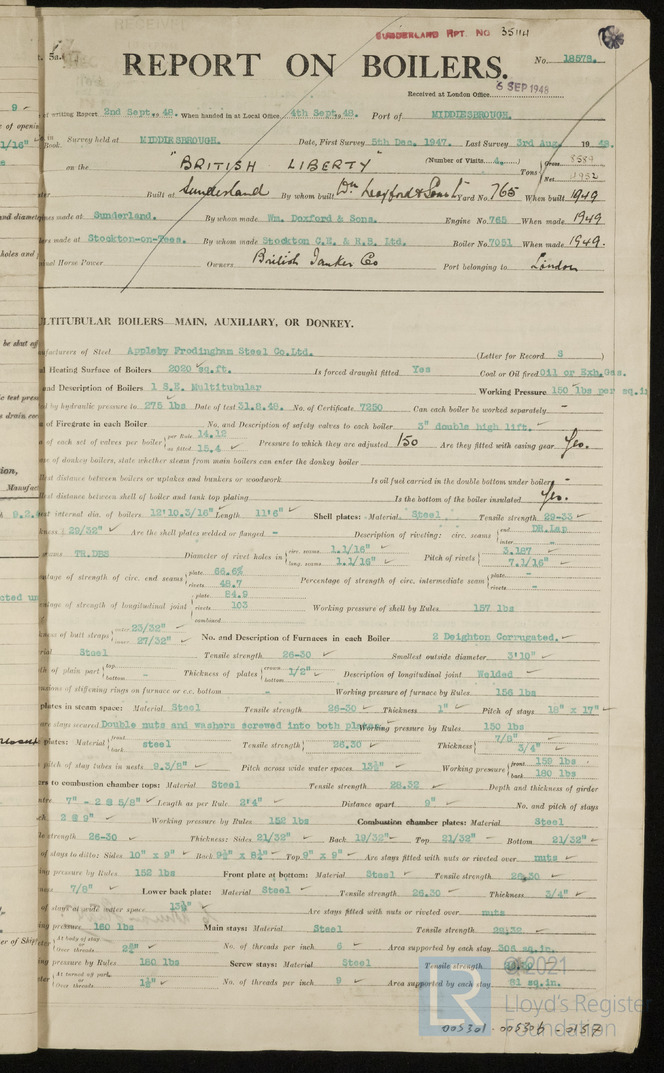 SUNDERLAND RPT. NO. 35114
5a.
No. 18578.
REPORT ON BOILERS.
Received at London Office 6 SEP 1948
of writing Report 2nd Sept. 19 48. When handed in at Local Office 4th Sept. 19 48. Port of MIDDLESBROUGH.
in Book. Survey held at MIDDLESBROUGH. Date, First Survey 5th Dec. 1947. Last Survey 3rd Aug. 19 48.
on the "BRITISH LIBERTY" (Number of Visits 4.) Tons Gross 8589 Net 4952
Built at Sunderland By whom built Wm Doxford & Sons Ltd Yard No. 765 When built 1949
made at Sunderland. By whom made Wm. Doxford & Sons. Engine No. 765 When made 1949
made at Stockton-on-Tees. By whom made Stockton C.E. & H.B. Ltd. Boiler No. 7051 When made 1949.
Horse Power Owners British Tanker Co Port belonging to London
MULTITUBULAR BOILERS—MAIN, AUXILIARY, OR DONKEY.
of Steel Appleby Frodingham Steel Co. Ltd. (Letter for Record S )
Heating Surface of Boilers 2020 sq.ft. Is forced draught fitted Yes Coal or Oil fired Oil or Exh. Gas.
and Description of Boilers 1 S.E. Multitubular Working Pressure 150 lbs per sq.in
by hydraulic pressure to 275 lbs Date of test 31.8.48. No. of Certificate 7250 Can each boiler be worked separately -
of Firegrate in each Boiler No. and Description of safety valves to each boiler 3" double high lift.
of each set of valves per boiler per Rule 14.18 as fitted 15.4 Pressure to which they are adjusted 150 Are they fitted with easing gear Yes.
of donkey boilers, state whether steam from main boilers can enter the donkey boiler
distance between boilers or uptakes and bunkers or woodwork Is oil fuel carried in the double bottom under boilers
distance between shell of boiler and tank top plating Is the bottom of the boiler insulated Yes.
internal dia. of boilers 12'10.3/16" Length 11'6" Shell plates: Material Steel Tensile strength 29-33
29/32" Are the shell plates welded or flanged - Description of riveting: circ. seams end DR.Lap inter.
TR.DBS Diameter of rivet holes in circ. seams 1.1/16" long. seams 1.1/16" Pitch of rivets 3.187 7.1/16"
of strength of circ. end seams plate 66.6% rivets 48.7 Percentage of strength of circ. intermediate seam plate - rivets -
of strength of longitudinal joint plate 84.9 rivets 103 combined Working pressure of shell by Rules 157 lbs
of butt straps outer 23/32" inner 27/32" No. and Description of Furnaces in each Boiler 2 Deighton Corrugated.
Steel Tensile strength 26-30 Smallest outside diameter 3'10"
of plain part top bottom - Thickness of plates crown bottom 1/2" Description of longitudinal joint Welded
of stiffening rings on furnace or c.c. bottom - Working pressure of furnace by Rules 156 lbs
plates in steam space: Material Steel Tensile strength 26-30 Thickness 1" Pitch of stays 18" x 17"
stays secured Double nuts and washers screwed into both plates Working pressure by Rules 150 lbs
plates: Material front back steel Tensile strength 26.30 Thickness 7/8" 3/4"
pitch of stay tubes in nests 9.3/8" Pitch across wide water spaces 13½" Working pressure front 159 lbs back 180 lbs
to combustion chamber tops: Material Steel Tensile strength 28.32 Depth and thickness of girder
7" - 2 @ 5/8" Length as per Rule 2'4" Distance apart 9" No. and pitch of stays
2 @ 9" Working pressure by Rules 152 lbs Combustion chamber plates: Material Steel
strength 26-30 Thickness: Sides 21/32" Back 19/32" Top 21/32" Bottom 21/32"
of stays to ditto: Sides 10" x 9" Back 9½" x 8¾" Top 9" x 9" Are stays fitted with nuts or riveted over nuts
pressure by Rules 152 lbs Front plate at bottom: Material Steel Tensile strength 26.30
7/8" Lower back plate: Material Steel Tensile strength 26.30 Thickness 3/4"
of stays at wide water space 13½" Are stays fitted with nuts or riveted over nuts
pressure 160 lbs Main stays: Material Steel Tensile strength 28.32
At body of stay Over threads 2¾" No. of threads per inch 6 Area supported by each stay 306 sq.in.
pressure by Rules 160 lbs Screw stays: Material Steel Tensile strength
At turned off part Over threads No. of threads per inch 9 Area supported by each stay 81 sq.in.
© 2021
LR Lloyd's Register Foundation
005301-005306-0157